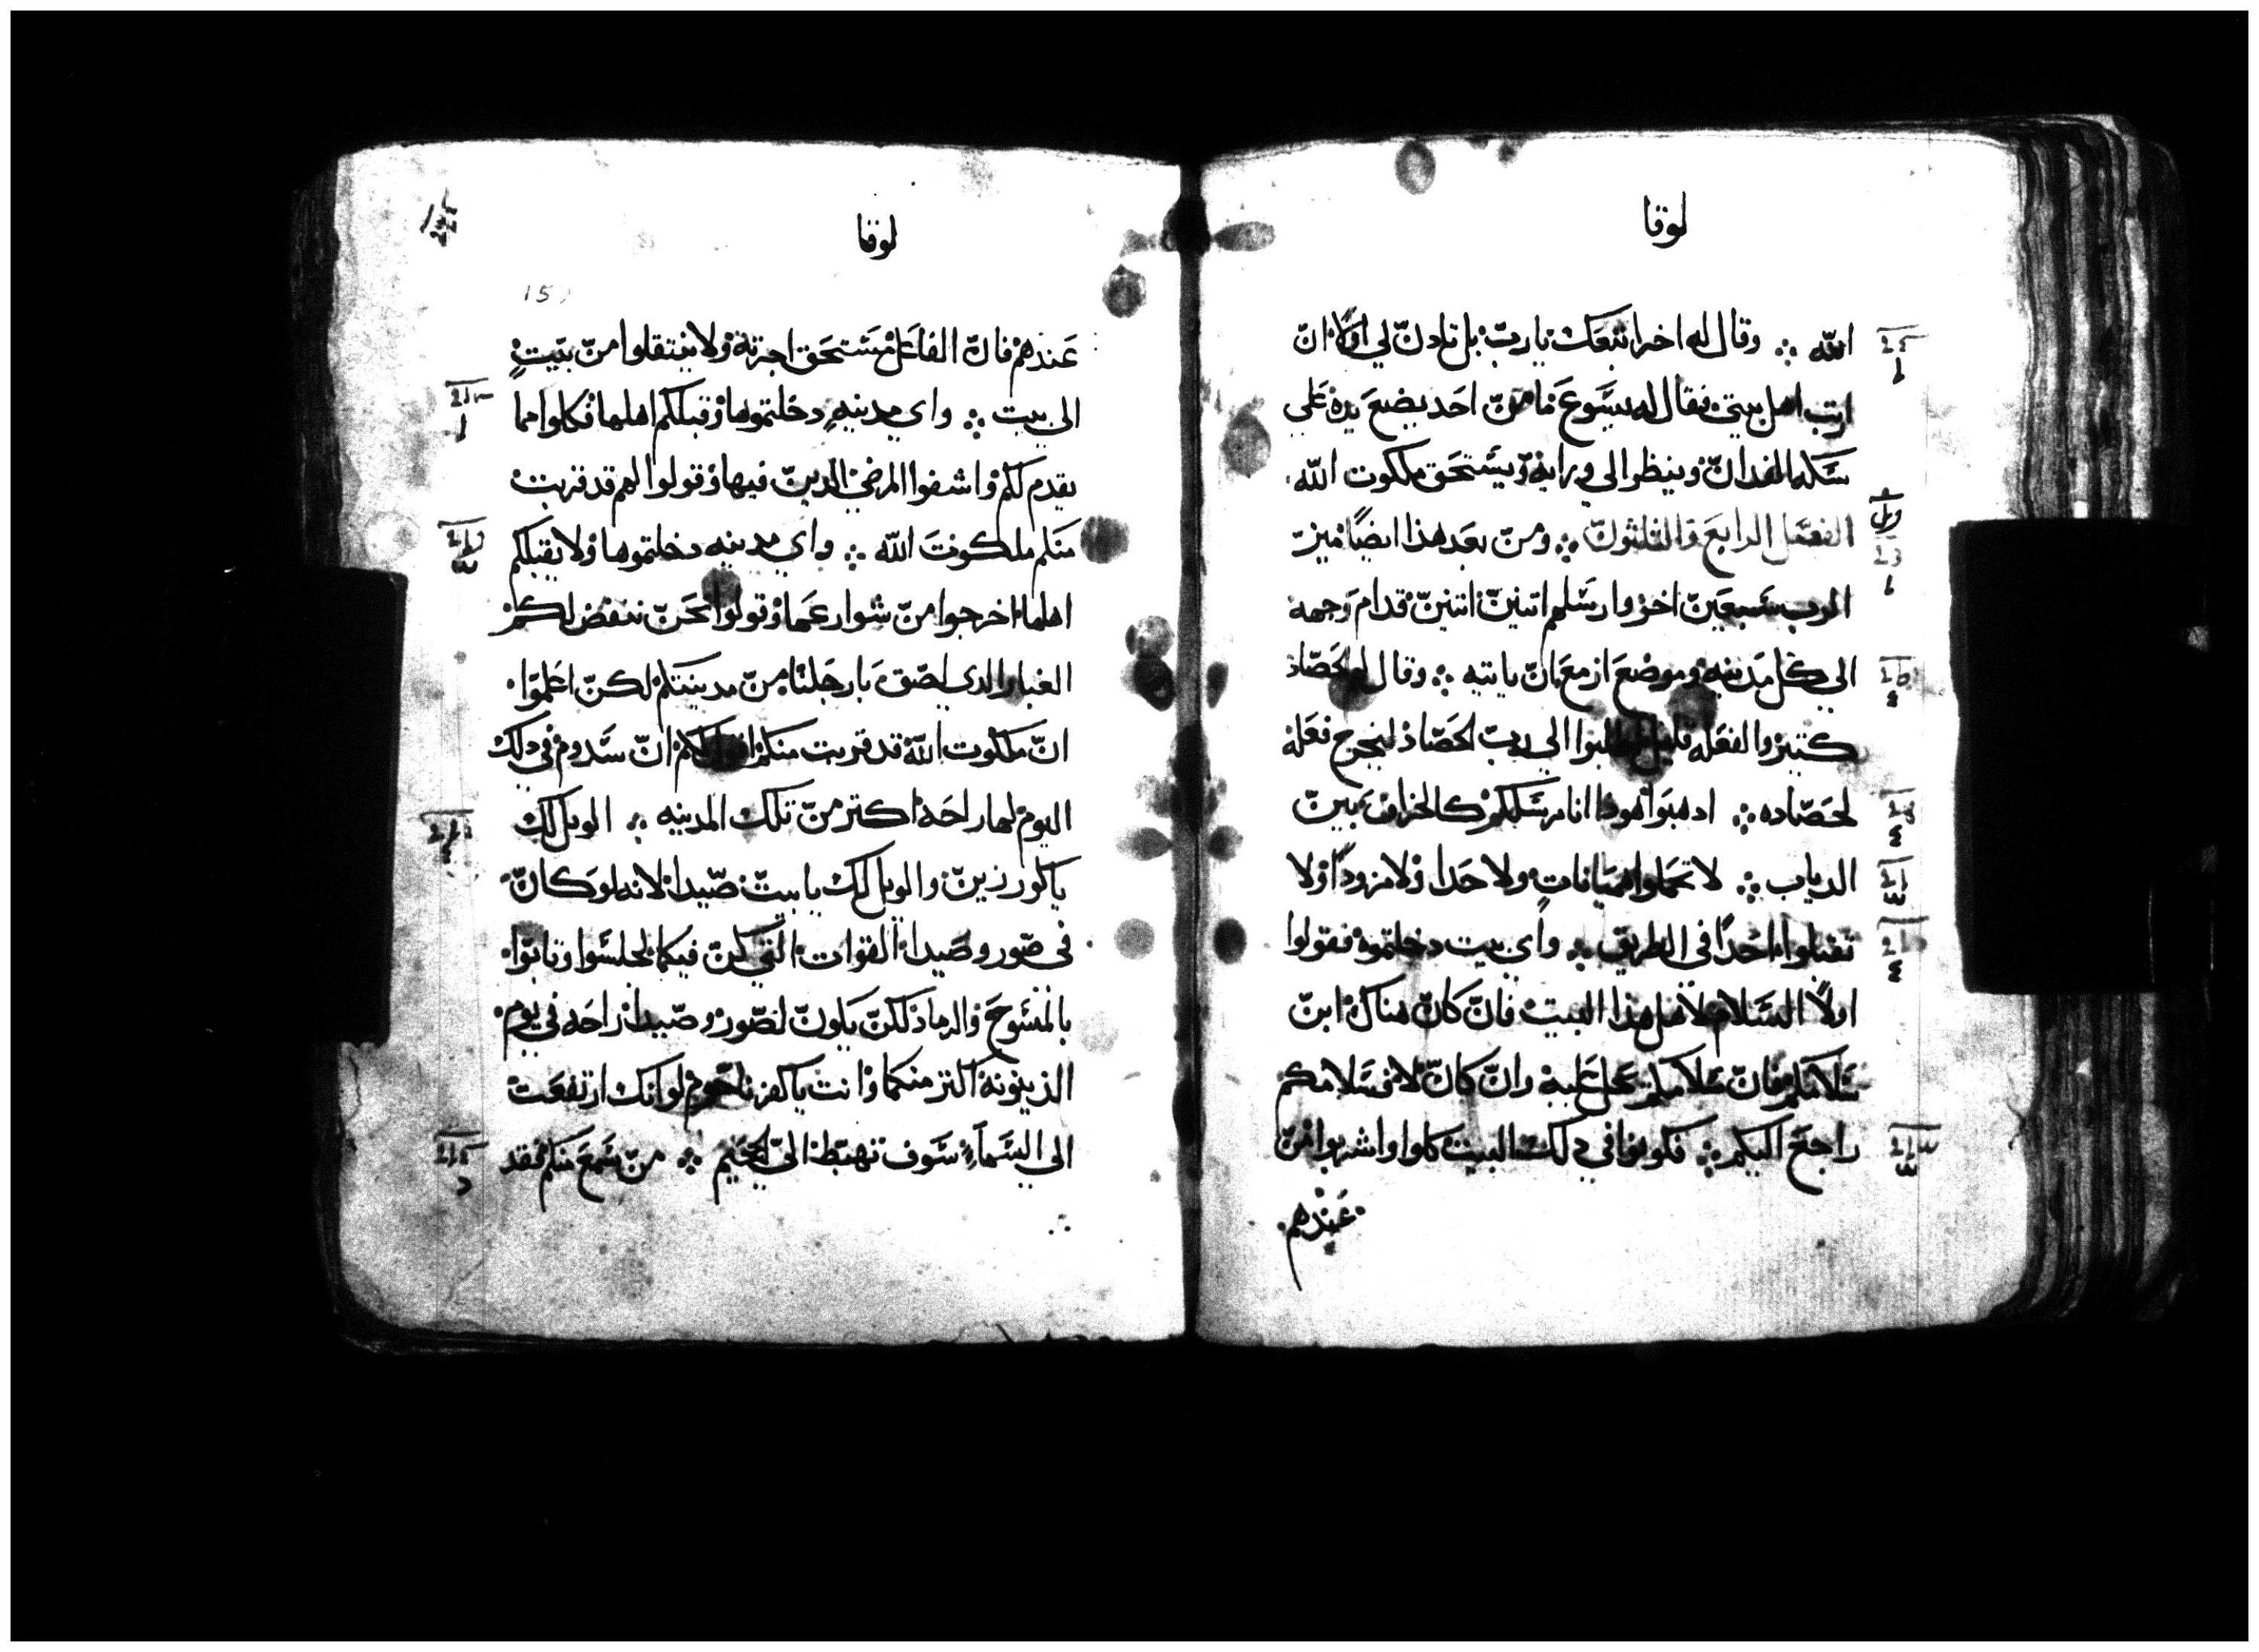 لوقا
الله ܀ وقال له اخر اتبعك يا رب بل تادن لي اولًا ان
ارتب اهل بيتي فقال له يسوع ما من احد يضع يده علي
سكه الفدان وينظر الى ورايه ويستحق ملكوت الله
الفصل الرابع والثلثون ܀ ومن بعد هذا ايضًا ميز
الرب سبعين اخر وارسلهم اتنين اتنين قدام وجهه
الي كل مدينه وموضع ازمع ان ياتيه ܀ وقال لهم الحصاد
كتير والفعله قليل اطلبوا الي رب الحصاد ليخرج فعله
لحصاده ܀ ادهبوا هودا انا مرسلكم كالخراف بين
الدياب ܀ لا تحملوا هميانات ولا حدا ولا مزودًا ولا
تقبلوا احدًا في الطريق ܀ واي بيت دخلتموه فقولوا
اولًا السلام لاهل هذا البيت فان كان هناك ابن
سلامكم فان سلامكم يحل عليه وان كان لا فسلامكم
راجع اليكم ܀ فكونوا في دلك البيت كلوا واشربوا من
عندهم
لوقا
عندهم فان الفاعل مستحق اجرته ولا ينتقلوا من بيت
الى بيت ܀ واي مدينه دخلتموها وقبلكم اهلها فكلوا مما
يقدم لكم واشفوا المرضي الدين فيها وقولوا لهم قد قربت
منكم ملكوت الله ܀ واي مدينه دخلتموها ولا يقبلكم
اهلها اخرجوا من شوارعها وقولوا نحن ننفض لكم
الغبار الدي لصق بارجلنا من مدينتكم لكن اعلموا
ان ملكوت الله قد قربت منكم اقول لكم ان سدوم في دلك
اليوم لها راحه اكتر من تلك المدينه ܀ الويل لك
يا كورزين والويل لك يا بيت صيدا لانه لو كان
في صور وصيدا القوات التي كن فيكما لجلسوا وتابوا
بالمسوح والرماد لكن يكون لصور وصيدا راحه في يوم
الدينونه اكتر منكما وانت يا كفرناحوم لو انك ارتفعت
الى السماء سوف تهبط الي الجحيم ܀ من سمع منكم فقد